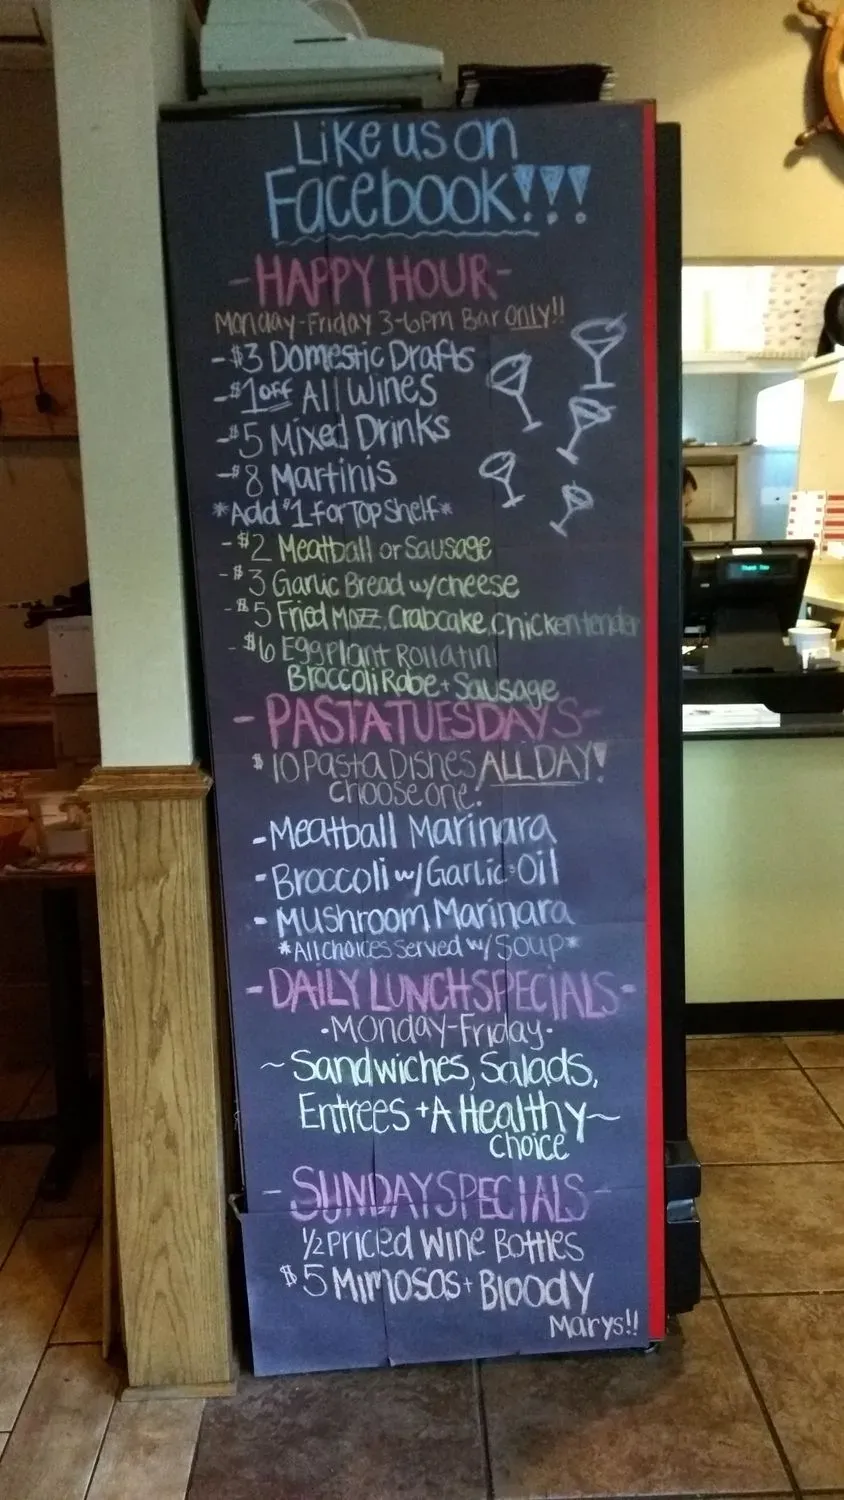 Like us on
Facebook!!!
- HAPPY HOUR -
Monday-Friday 3-6pm Bar only!!
- $3 Domestic Drafts
- $1 off All Wines
- $5 Mixed Drinks
- $8 Martinis
*Add $1 for Top Shelf*
- $2 Meatball or Sausage
- $3 Garlic Bread w/cheese
- $5 Fried Mozz, Crabcake, Chicken tender
- $6 Eggplant Rollatini
Broccoli Robe + Sausage
- PASTA TUESDAYS -
$10 Pasta Dishes ALL DAY!
choose one:
- Meatball Marinara
- Broccoli w/ Garlic + Oil
- Mushroom Marinara
*All choices served w/ Soup*
- DAILY LUNCH SPECIALS -
- Monday-Friday -
~ Sandwiches, Salads,
Entrees + A Healthy ~
choice
- SUNDAY SPECIALS -
1/2 Priced Wine Bottles
$5 Mimosas + Bloody
Marys!!
Thank You